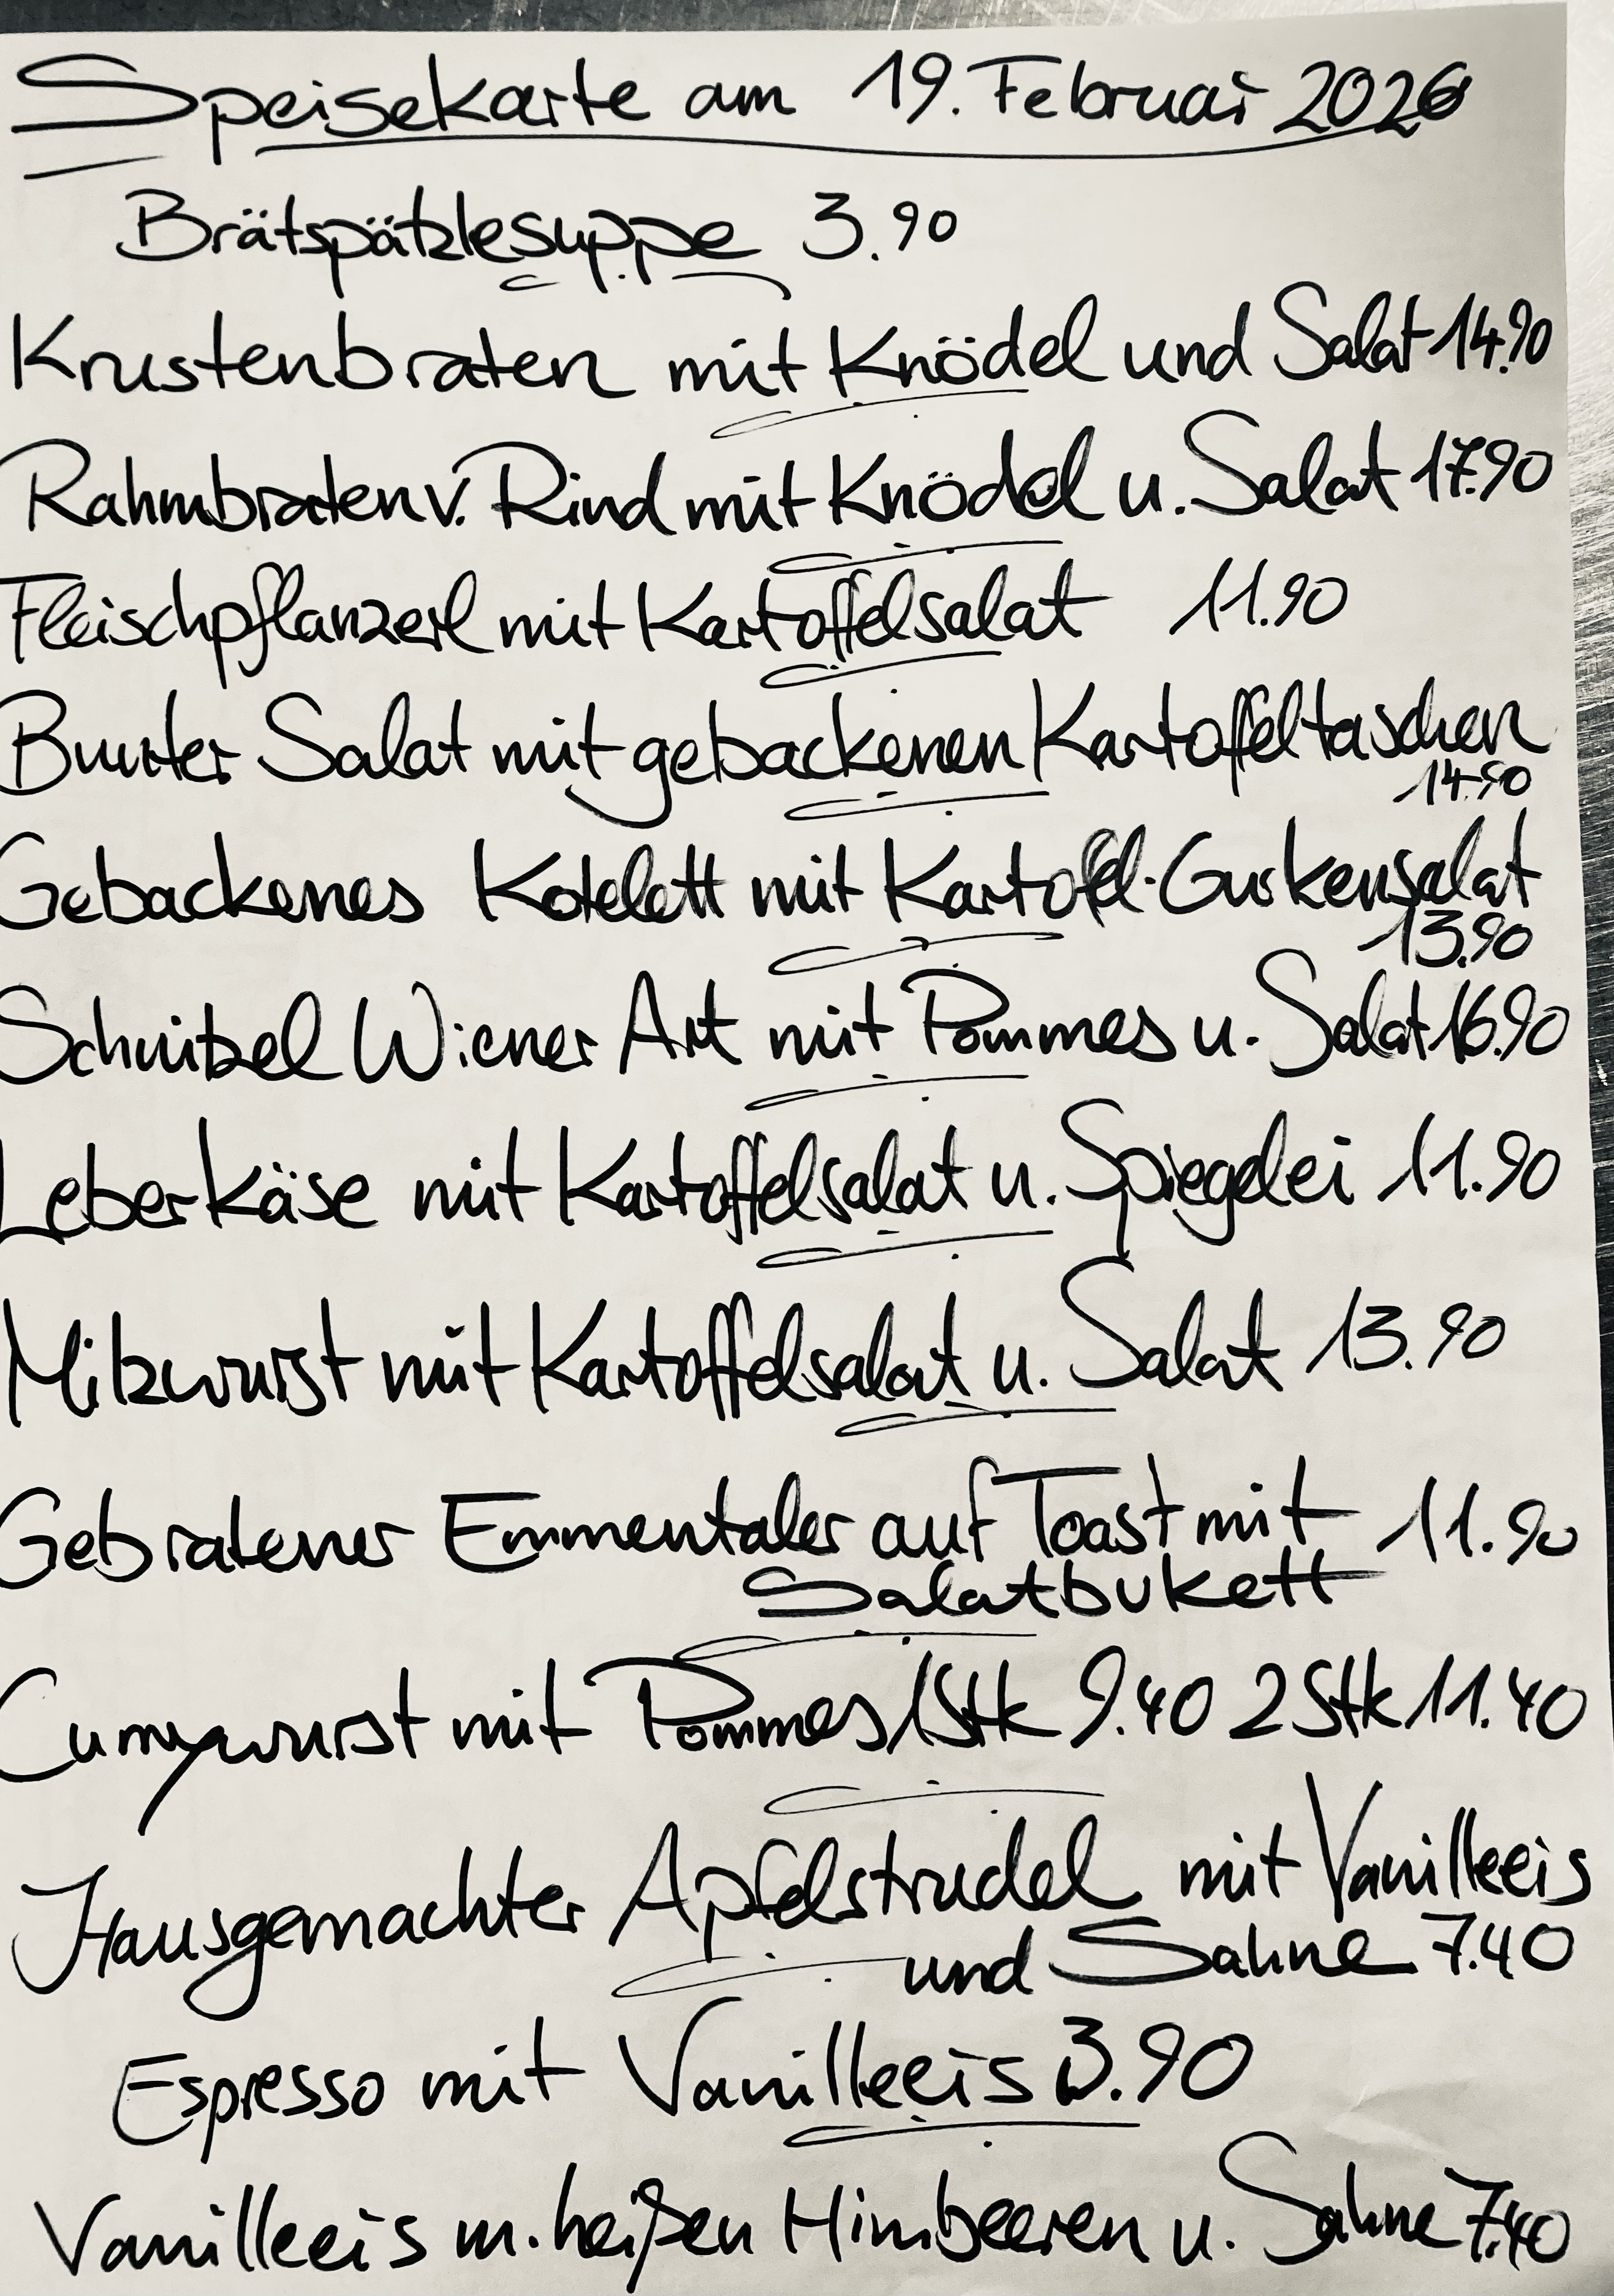 Speisekarte am 19. Februar 2026
Brätspätzlesuppe 3.90
Krustenbraten mit Knödel und Salat 14.90
Rahmbraten v. Rind mit Knödel u. Salat 17.90
Fleischpflanzerl mit Kartoffelsalat 11.90
Bunter Salat mit gebackenen Kartoffeltaschen
14.90
Gebackenes Kotelett mit Kartoffel-Gurkensalat
13.90
Schnitzel Wiener Art mit Pommes u. Salat 16.90
Leberkäse mit Kartoffelsalat u. Spiegelei 11.90
Milzwurst mit Kartoffelsalat u. Salat 13.90
Gebratener Emmentaler auf Toast mit 11.90
Salatbukett
Currywurst mit Pommes 1Stk 9.40 2 Stk 11.40
Hausgemachter Apfelstrudel mit Vanilleeis
und Sahne 7.40
Espresso mit Vanilleeis 3.90
Vanilleeis m. heißen Himbeeren u. Sahne 7.40